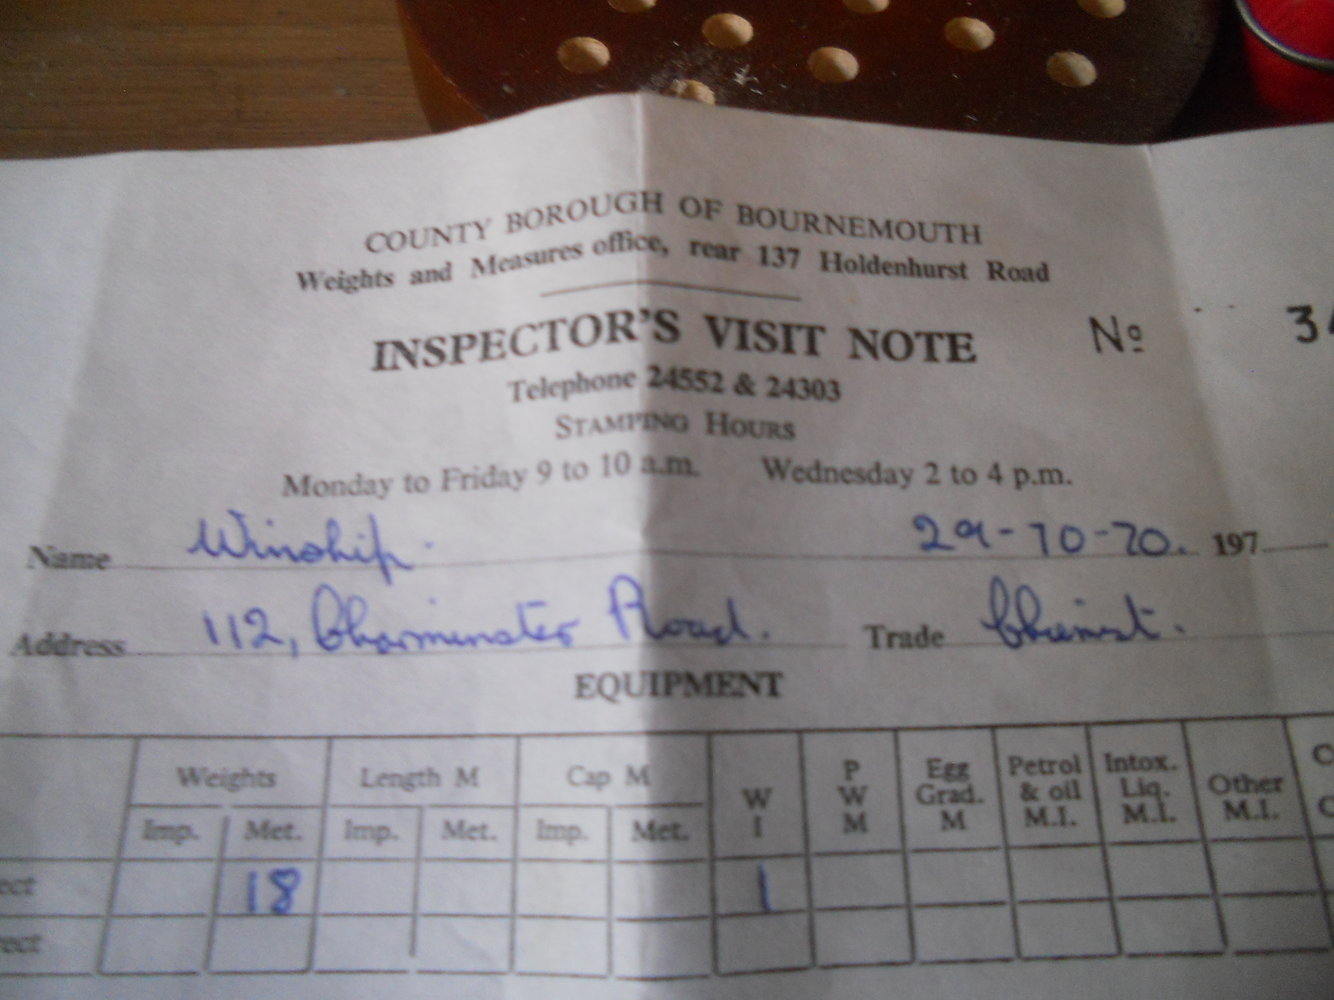 COUNTY BOROUGH OF BOURNEMOUTH
Weights and Measures office, rear 137 Holdenhurst Road
INSPECTOR'S VISIT NOTE Nº 34
Telephone 24552 & 24303
STAMPING HOURS
Monday to Friday 9 to 10 a.m. Wednesday 2 to 4 p.m.
Name Winship. 29-10-70. 197
Address 112, Charminster Road. Trade Chemist.
EQUIPMENT
Weights Length M Cap M W I P W M Egg Grad. M Petrol & oil M.I. Intox. Liq. M.I. Other M.I. C
Imp. Met. Imp. Met. Imp. Met.
ect 18 1
rect